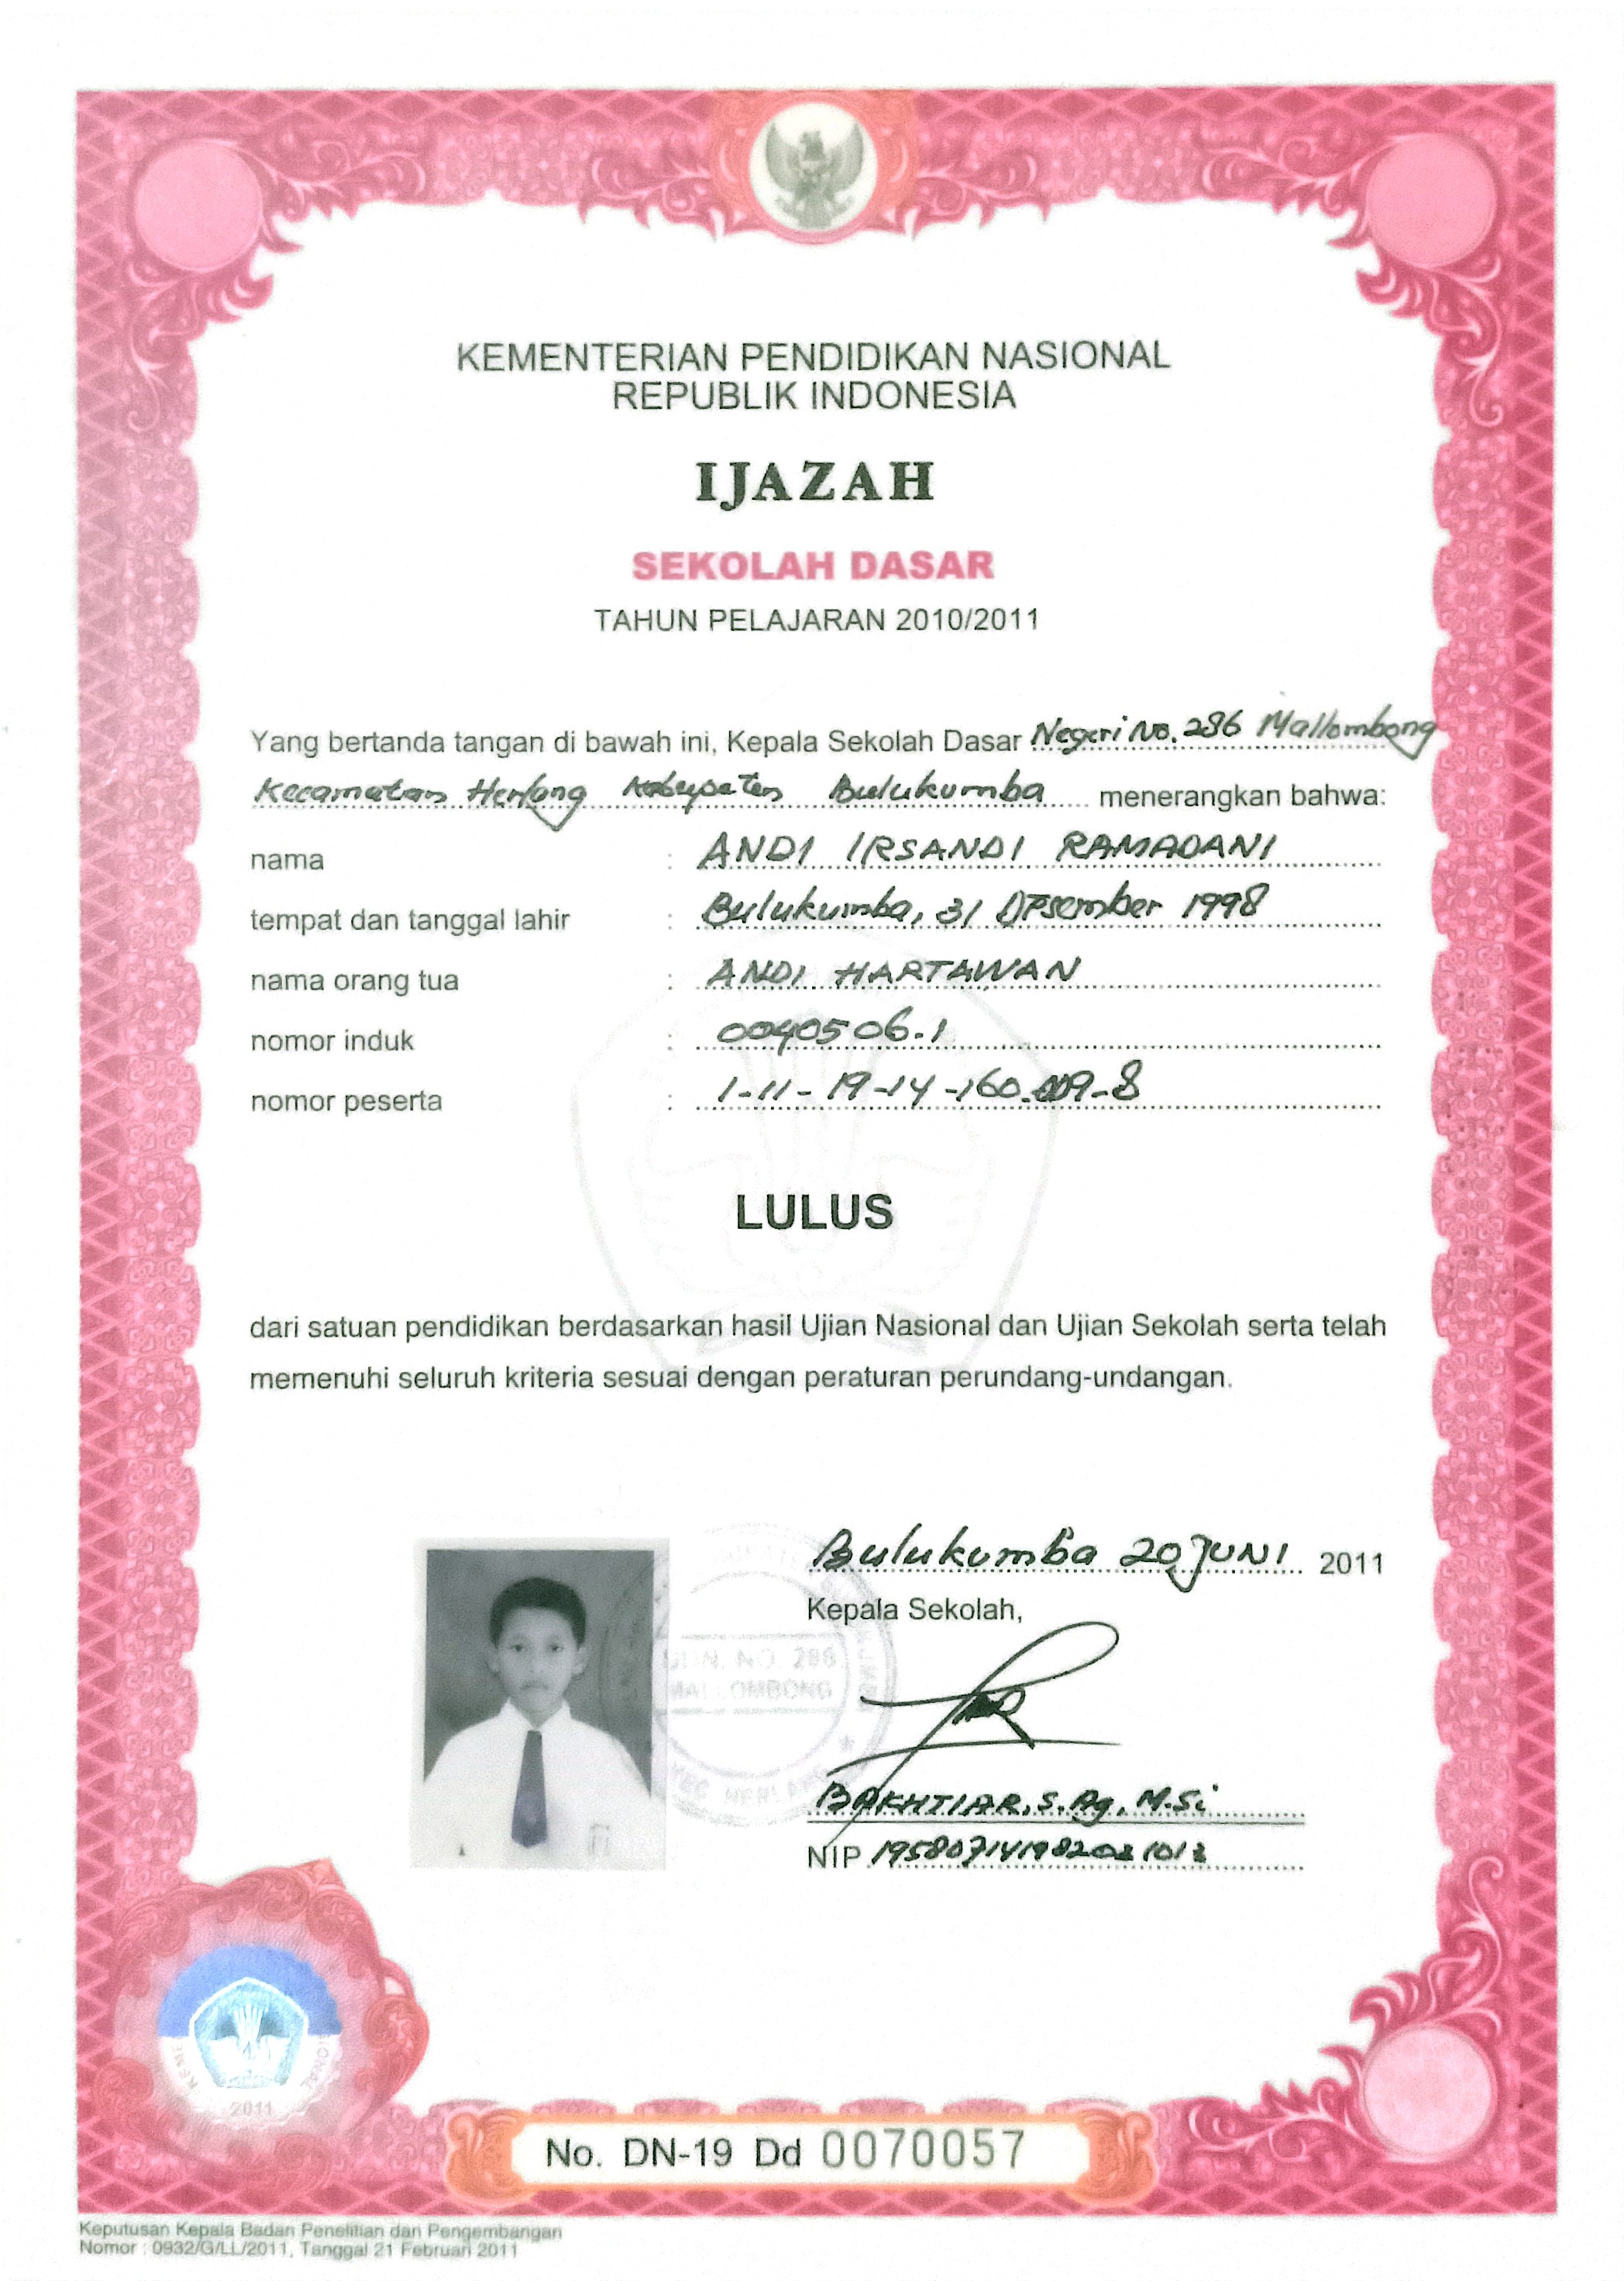 KEMENTERIAN PENDIDIKAN NASIONAL
REPUBLIK INDONESIA
IJAZAH
SEKOLAH DASAR
TAHUN PELAJARAN 2010/2011
Yang bertanda tangan di bawah ini, Kepala Sekolah Dasar Negeri No. 286 Mallombong
Kecamatan Herlang Kabupaten Bulukumba menerangkan bahwa:
nama : ANDI IRSANDI RAMADANI
tempat dan tanggal lahir : Bulukumba, 31 Desember 1998
nama orang tua : ANDI HARTAWAN
nomor induk : 0040506.1
nomor peserta : 1-11-19-14-160.009-8
LULUS
dari satuan pendidikan berdasarkan hasil Ujian Nasional dan Ujian Sekolah serta telah
memenuhi seluruh kriteria sesuai dengan peraturan perundang-undangan.
Bulukumba 20 JUNI 2011
Kepala Sekolah,
SDN. NO. 286
MALLOMBONG
KEC HERLANG
BAKHTIAR, S.Ag, M.Si
NIP 195807141982021013
2011
No. DN-19 Dd 0070057
Keputusan Kepala Badan Penelitian dan Pengembangan
Nomor : 0932/G/LL/2011, Tanggal 21 Februari 2011